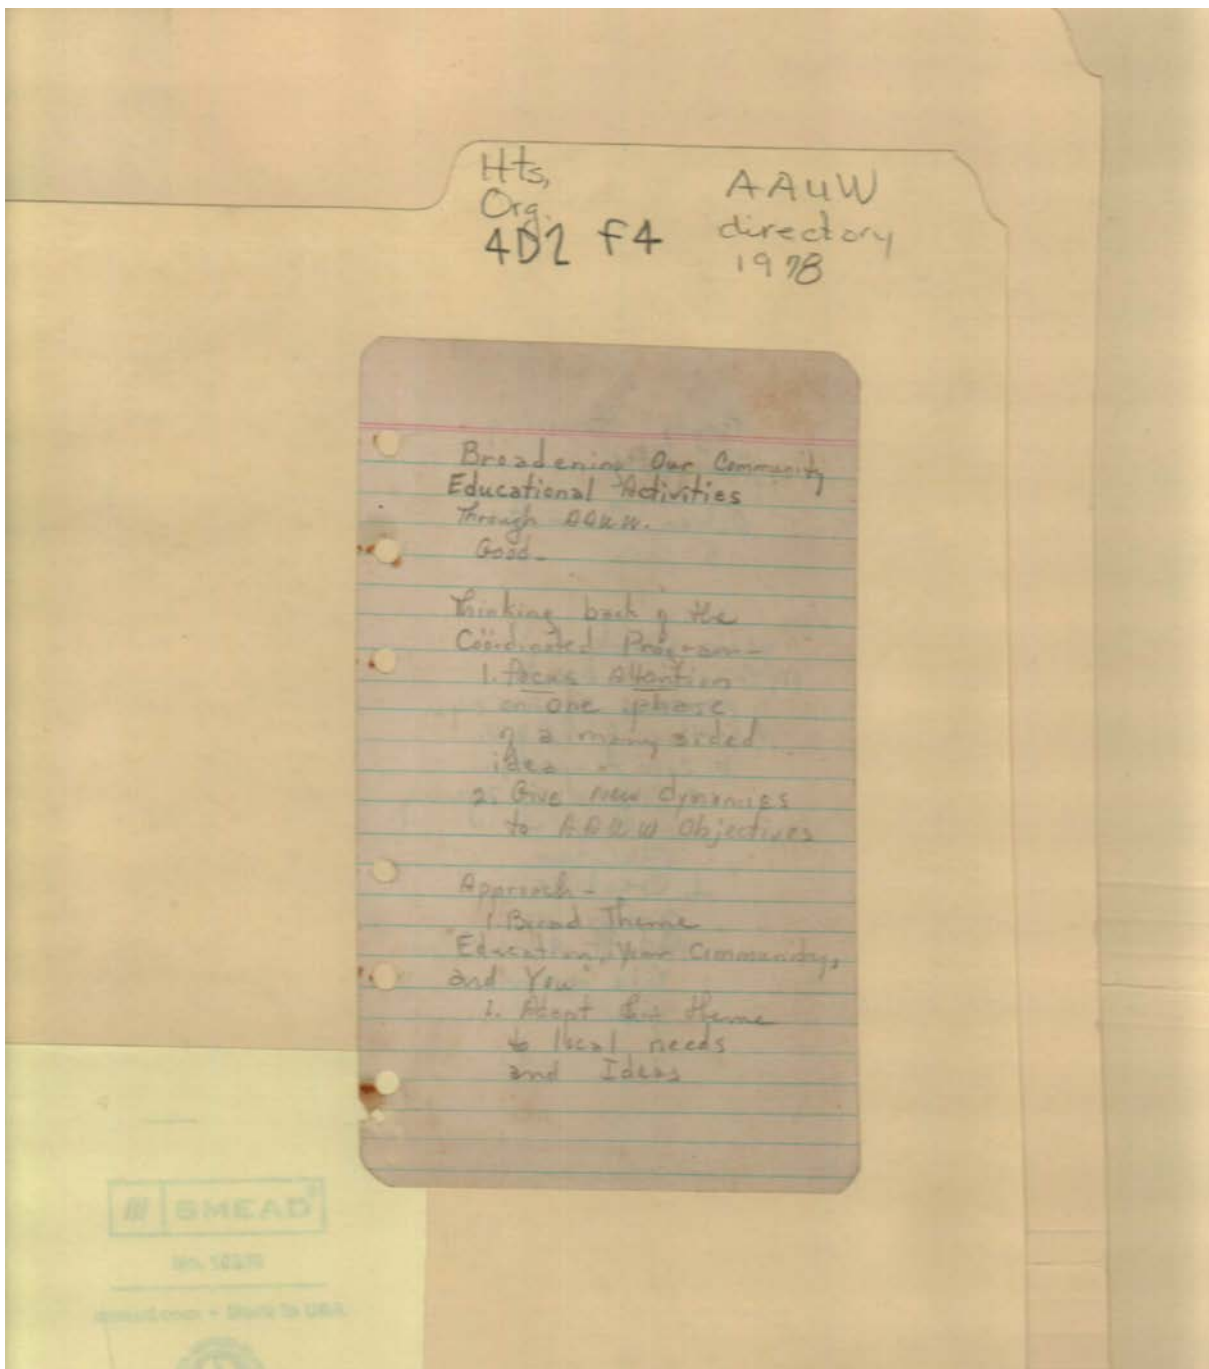 Hts,
Org.
4D2 f4
AAUW
directory
1978
Broadening Our Community
Educational Activities
Through AAUW.
Good-
Thinking back of the
Coördinated Program-
1. Focus Attention
on one phase
of a many sided
idea
2. Give new dynamics
to AAUW Objectives
Approach-
1. Broad Theme
"Education, Your Community,
and You"
2. Adapt this theme
to local needs
and Ideas
SMEAD